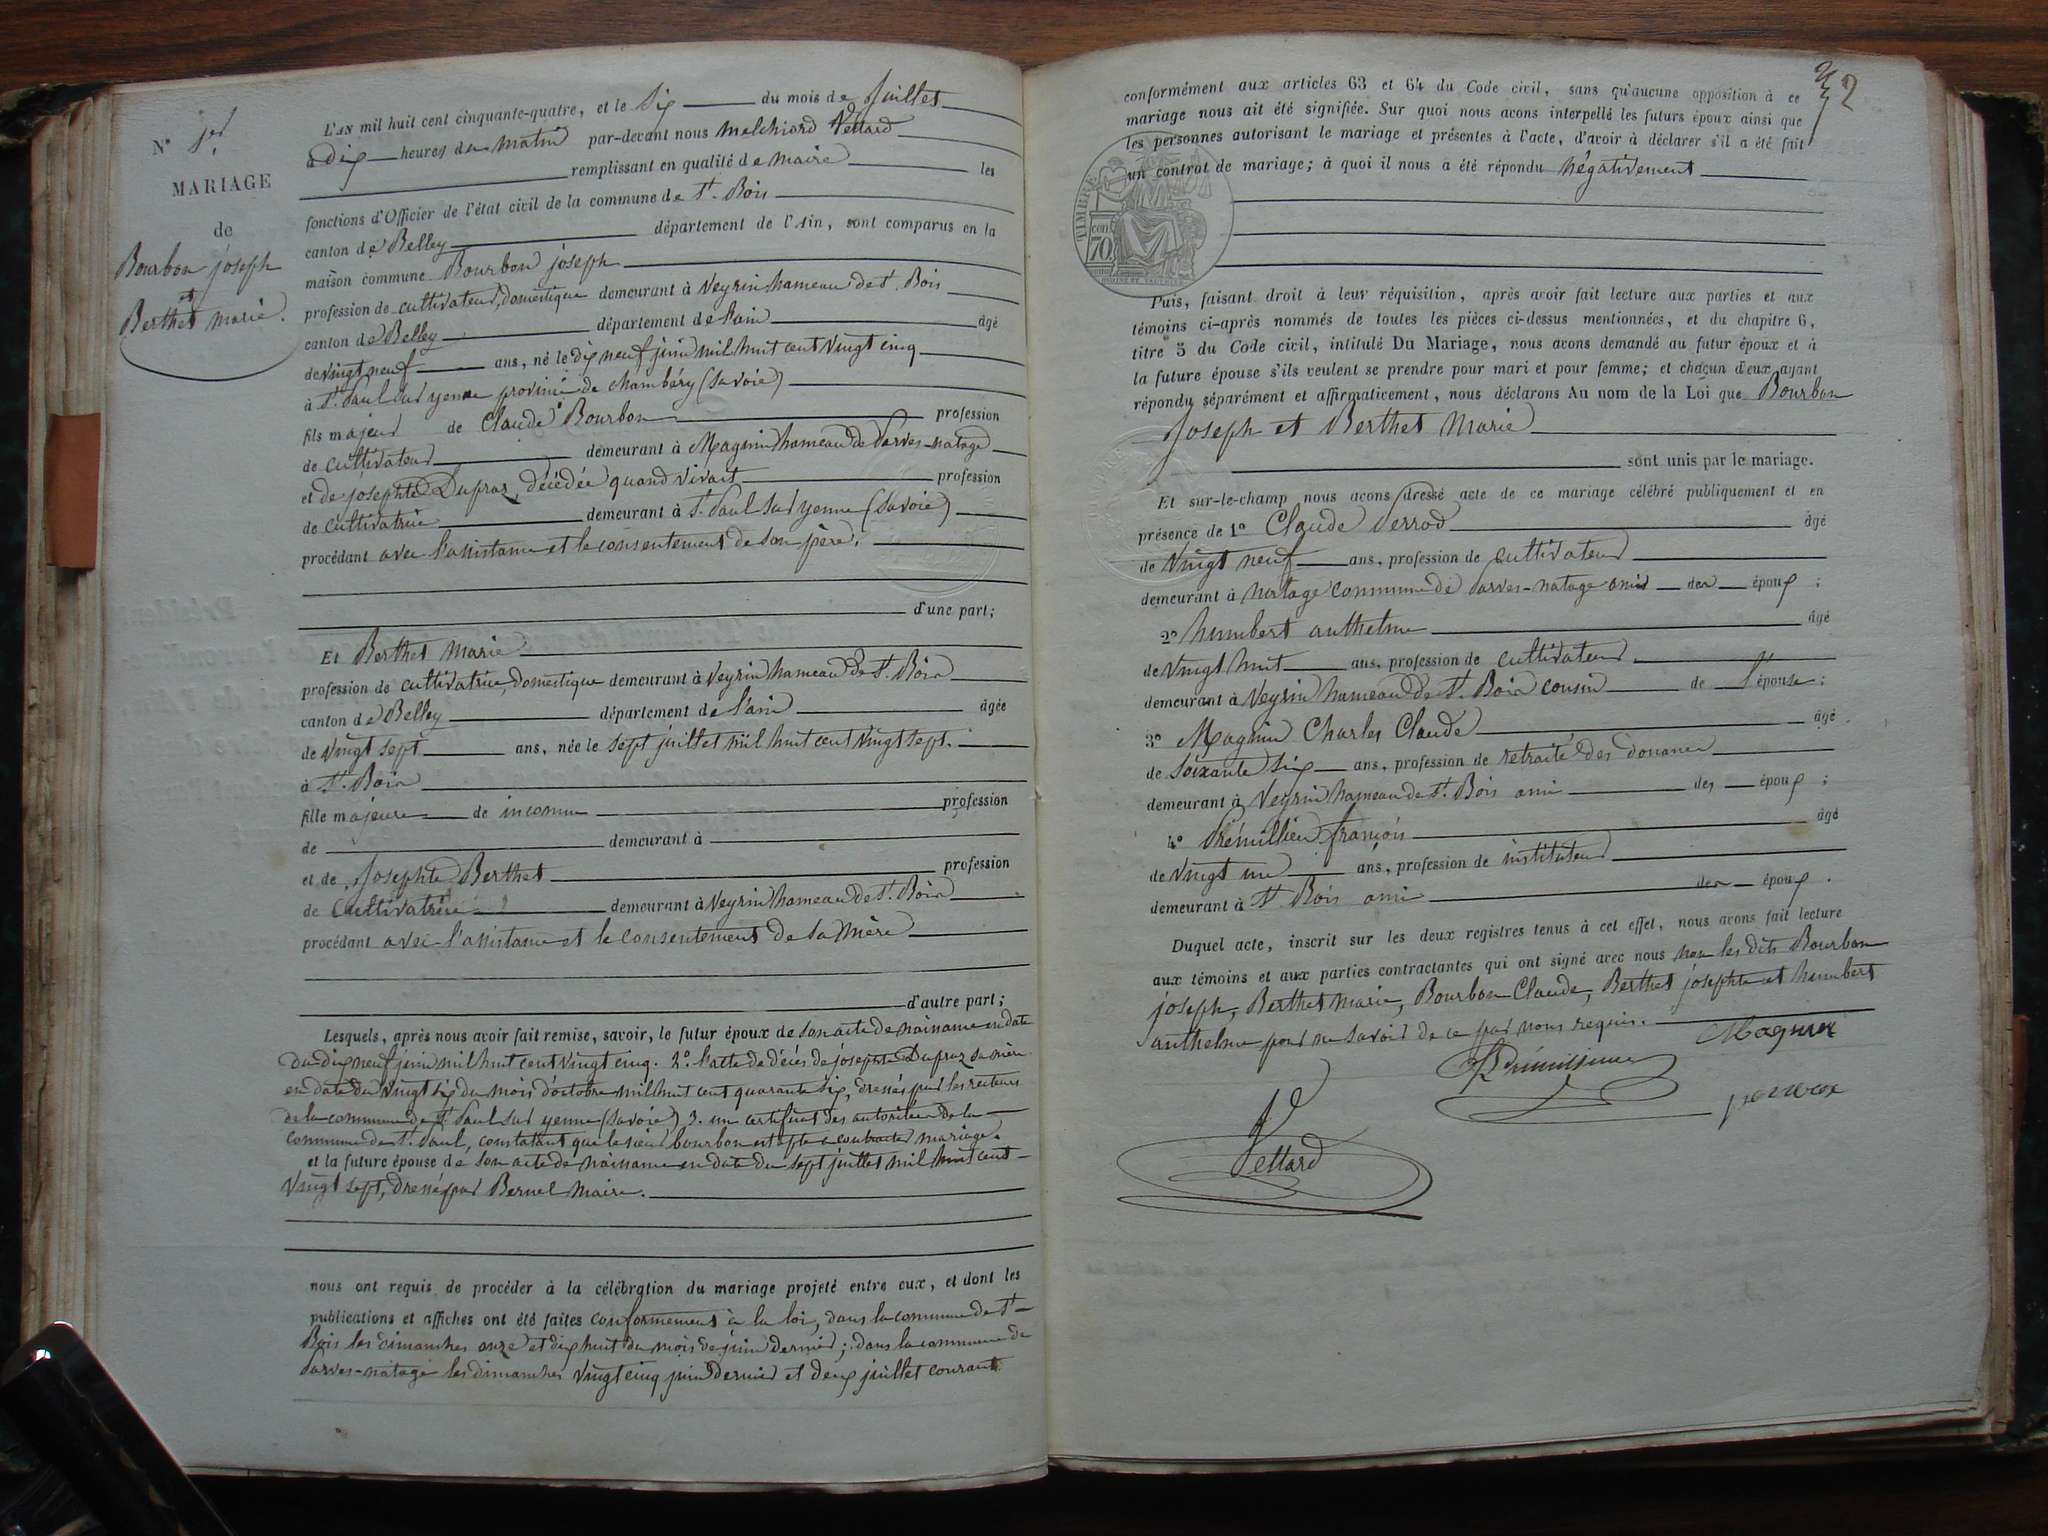 N° 1er
MARIAGE
de
Bourbon joseph
et
Berthet marie.
L'an mil huit cent cinquante-quatre, et le six du mois de Juillet
à dix heures du matin par-devant nous melchiord Vettard
remplissant en qualité de maire les
fonctions d'Officier de l'état civil de la commune de St. Bois
canton de Belley département de l'Ain, sont comparus en la
maison commune Bourbon joseph
profession de cultivateur, domestique demeurant à Veyrin hameau de St. Bois
canton de Belley département de l'ain âgé
de vingt neuf ans, né le dix neuf juin mil huit cent vingt cinq
à St. Paul sur yenne province de chambéry (Savoie)
fils majeur de Claude Bourbon profession
de cultivateur demeurant à Magnin hameau de Parves-natage
et de josephte Dupraz, décédée quand vivait profession
de cultivatrice demeurant à St. Paul sur yenne (Savoie)
procédant avec l'assistance et le consentement de son père.
d'une part;
Et Berthet Marie
profession de cultivatrice, domestique demeurant à Veyrin hameau de St. Bois
canton de Belley département de l'ain âgée
de vingt sept ans, née le sept juillet mil huit cent vingt sept.
à St. Bois
fille majeure de inconnu profession
de demeurant à
et de Josephte Berthet profession
de Cultivatrice demeurant à Veyrin hameau de St. Bois
procédant avec l'assistance et le consentement de sa mère
d'autre part;
Lesquels, après nous avoir fait remise, savoir, le futur époux de son acte de naissance en date
du dix neuf juin mil huit cent vingt cinq. 2° l'acte de décès de josephte Dupraz sa mère
en date du vingt six du mois d'octobre mil huit cent quarante six, dressés par les recteurs
de la commune de St. Paul sur yenne (Savoie) 3. un certificat des autorités de la
commune de St. Paul, constatant que le sieur bourbon est apte a contracter mariage.
et la future épouse de son acte de naissance en date du sept juillet mil huit cent
vingt sept, dressé par Bernel maire.
nous ont requis de procéder à la célébration du mariage projeté entre eux, et dont les
publications et affiches ont été faites conformément à la loi, dans la commune de St
Bois les dimanches onze et dix huit du mois de juin dernier; dans la commune de
Parves-natage les dimanches vingt cinq juin dernier et deux juillet courant
2
conformément aux articles 63 et 64 du Code civil, sans qu'aucune opposition à ce
mariage nous ait été signifiée. Sur quoi nous avons interpellé les futurs époux ainsi que
les personnes autorisant le mariage et présentes à l'acte, d'avoir à déclarer s'il a été fait
un contrat de mariage; à quoi il nous a été répondu négativement
TIMBRE
70
Puis, faisant droit à leur réquisition, après avoir fait lecture aux parties et aux
témoins ci-après nommés de toutes les pièces ci-dessus mentionnées, et du chapitre 6,
titre 5 du Code civil, intitulé Du Mariage, nous avons demandé au futur époux et à
la future épouse s'ils veulent se prendre pour mari et pour femme; et chacun d'eux ayant
répondu séparément et affirmativement, nous déclarons Au nom de la Loi que Bourbon
Joseph et Berthet Marie
sont unis par le mariage.
Et sur-le-champ nous avons dressé acte de ce mariage célébré publiquement et en
présence de 1° Claude Perrod âgé
de vingt neuf ans, profession de cultivateur
demeurant à natage commune de Parves-natage ami des époux;
2° humbert anthelme âgé
de vingt huit ans, profession de cultivateur
demeurant à Veyrin hameau de St. Bois cousin de l'épouse;
3° Magnin Charles Claude âgé
de soixante six ans, profession de retraité des douanes
demeurant à Veyrin hameau de St. Bois ami des époux;
4° Prémillieu françois âgé
de vingt un ans, profession de instituteur
demeurant à St. Bois ami des époux.
Duquel acte, inscrit sur les deux registres tenus à cet effet, nous avons fait lecture
aux témoins et aux parties contractantes qui ont signé avec nous non les dits Bourbon
joseph, Berthet Marie, Bourbon Claude, Berthet josephte et humbert
anthelme pour ne savoir de ce par nous requis.
Magnin
Prémillieu
perrod
Vettard